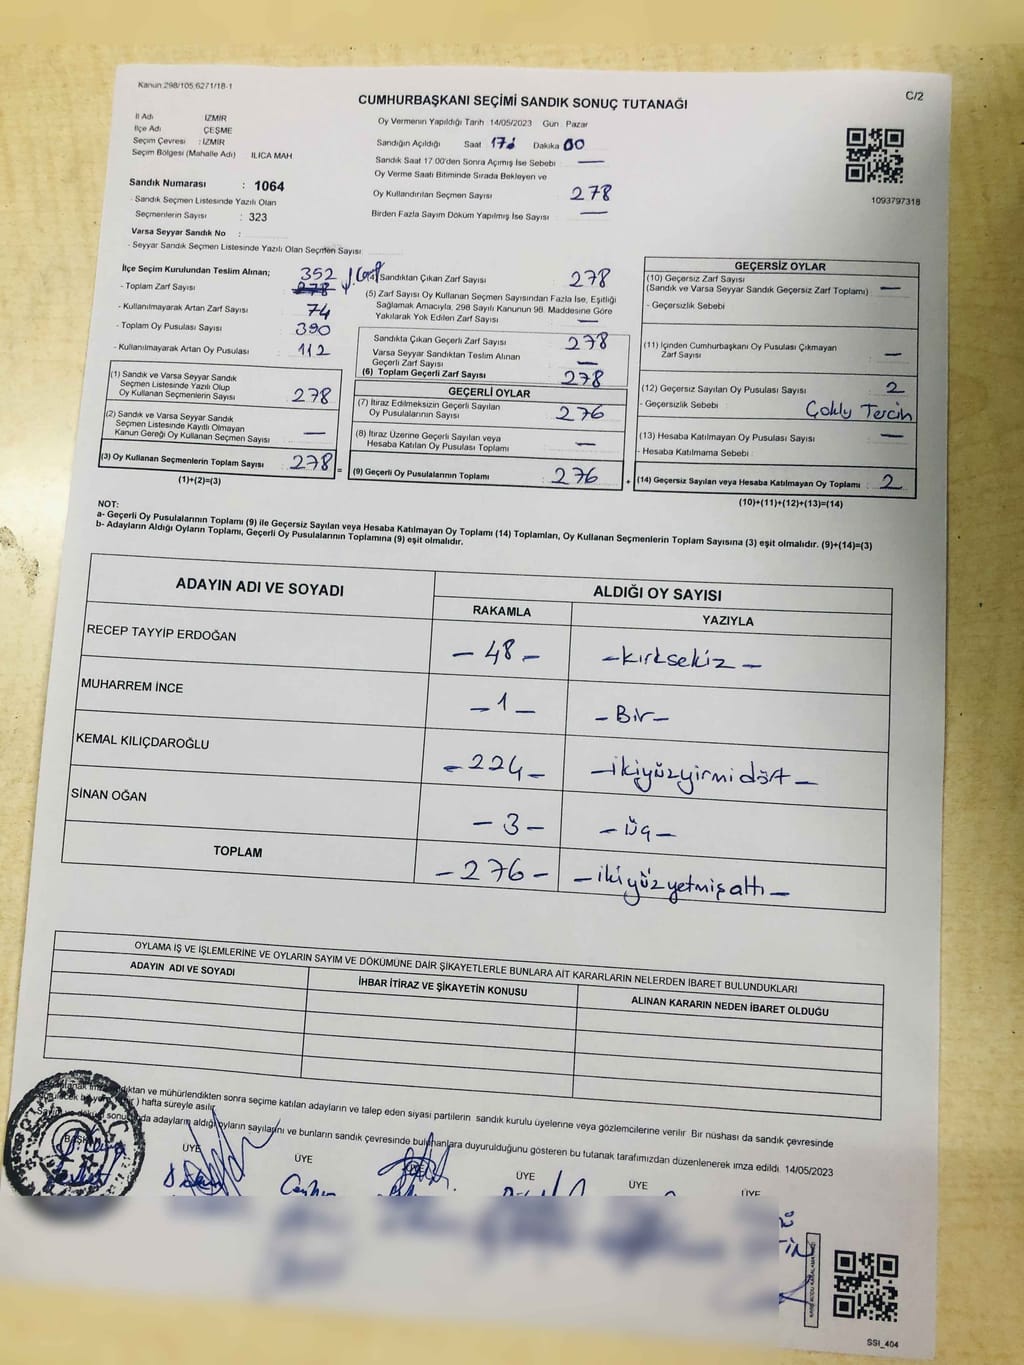 Kanun:298/105;6271/18-1
C/2
CUMHURBAŞKANI SEÇİMİ SANDIK SONUÇ TUTANAĞI
İl Adı İZMİR
İlçe Adı ÇEŞME
Seçim Çevresi : İZMİR
Seçim Bölgesi (Mahalle Adı) ILICA MAH
Sandık Numarası : 1064
- Sandık Seçmen Listesinde Yazılı Olan
Seçmenlerin Sayısı : 323
Varsa Seyyar Sandık No :
- Seyyar Sandık Seçmen Listesinde Yazılı Olan Seçmen Sayısı
Oy Vermenin Yapıldığı Tarih 14/05/2023 Gün Pazar
Sandığın Açıldığı Saat Dakika 00
Sandık Saat 17.00'den Sonra Açımış İse Sebebi —
Oy Verme Saati Bitiminde Sırada Bekleyen ve
Oy Kullandırılan Seçmen Sayısı 278
Birden Fazla Sayım Döküm Yapılmış İse Sayısı —
1093797318
İlçe Seçim Kurulundan Teslim Alınan; 352
- Toplam Zarf Sayısı 278
- Kullanılmayarak Artan Zarf Sayısı 74
- Toplam Oy Pusulası Sayısı 390
- Kullanılmayarak Artan Oy Pusulası 112
(1) Sandık ve Varsa Seyyar Sandık
Seçmen Listesinde Yazılı Olup
Oy Kullanan Seçmenlerin Sayısı 278
(2) Sandık ve Varsa Seyyar Sandık
Seçmen Listesinde Kayıtlı Olmayan
Kanun Gereği Oy Kullanan Seçmen Sayısı —
(3) Oy Kullanan Seçmenlerin Toplam Sayısı 278 =
(1)+(2)=(3)
Sandıktan Çıkan Zarf Sayısı 278
(5) Zarf Sayısı Oy Kullanan Seçmen Sayısından Fazla İse, Eşitliği
Sağlamak Amacıyla, 298 Sayılı Kanunun 98. Maddesine Göre
Yakılarak Yok Edilen Zarf Sayısı —
Sandıkta Çıkan Geçerli Zarf Sayısı 278
Varsa Seyyar Sandıktan Teslim Alınan
Geçerli Zarf Sayısı —
(6) Toplam Geçerli Zarf Sayısı 278
GEÇERLİ OYLAR
(7) İtiraz Edilmeksizin Geçerli Sayılan
Oy Pusulalarının Sayısı 276
(8) İtiraz Üzerine Geçerli Sayılan veya
Hesaba Katılan Oy Pusulası Toplamı —
(9) Geçerli Oy Pusulalarının Toplamı 276 +
GEÇERSİZ OYLAR
(10) Geçersiz Zarf Sayısı
(Sandık ve Varsa Seyyar Sandık Geçersiz Zarf Toplamı) —
- Geçersizlik Sebebi
(11) İçinden Cumhurbaşkanı Oy Pusulası Çıkmayan
Zarf Sayısı —
(12) Geçersiz Sayılan Oy Pusulası Sayısı 2
- Geçersizlik Sebebi Çoklu Tercih
(13) Hesaba Katılmayan Oy Pusulası Sayısı —
- Hesaba Katılmama Sebebi
(14) Geçersiz Sayılan veya Hesaba Katılmayan Oy Toplamı : 2
(10)+(11)+(12)+(13)=(14)
NOT:
a- Geçerli Oy Pusulalarının Toplamı (9) ile Geçersiz Sayılan veya Hesaba Katılmayan Oy Toplamı (14) Toplamları, Oy Kullanan Seçmenlerin Toplam Sayısına (3) eşit olmalıdır. (9)+(14)=(3)
b- Adayların Aldığı Oyların Toplamı, Geçerli Oy Pusulalarının Toplamına (9) eşit olmalıdır.
ADAYIN ADI VE SOYADI ALDIĞI OY SAYISI
RAKAMLA YAZIYLA
RECEP TAYYİP ERDOĞAN – 48 – – kırksekiz –
MUHARREM İNCE – 1 – – Bir –
KEMAL KILIÇDAROĞLU – 224 – – ikiyüzyirmi dört –
SİNAN OĞAN – 3 – – üç –
TOPLAM – 276 – – ikiyüzyetmişaltı –
OYLAMA İŞ VE İŞLEMLERİNE VE OYLARIN SAYIM VE DÖKÜMÜNE DAİR ŞİKAYETLERLE BUNLARA AİT KARARLARIN NELERDEN İBARET BULUNDUKLARI
ADAYIN ADI VE SOYADI İHBAR İTİRAZ VE ŞİKAYETİN KONUSU ALINAN KARARIN NEDEN İBARET OLDUĞU
ve mühürlendikten sonra seçime katılan adayların ve talep eden siyasi partilerin sandık kurulu üyelerine veya gözlemcilerine verilir Bir nüshası da sandık çevresinde
) hafta süreyle asılır
adayların aldığı oyların sayılarını ve bunların sandık çevresinde bulunanlara duyurulduğunu gösteren bu tutanak tarafımızdan düzenlenerek imza edildi 14/05/2023
BAŞKAN ÜYE ÜYE ÜYE ÜYE ÜYE ÜYE
SSI_404